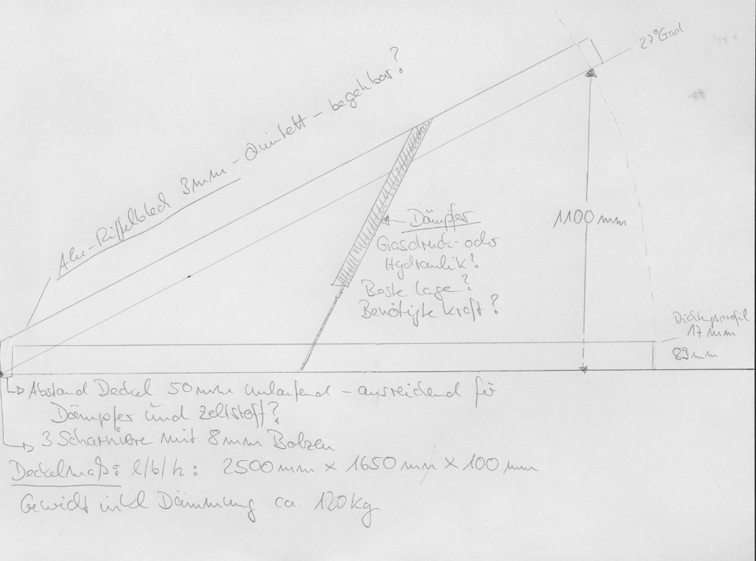 27°Grad
Alu-Riffelblech 3mm - Quintett - begehbar?
1100mm
Dämpfer
Gasdruck- oder
Hydraulik?
Beste Lage?
Benötigte Kraft?
Dichtungsprofil
17mm
83mm
Abstand Deckel 50mm umlaufend - ausreichend für
Dämpfer und Zeltstoff?
3 Scharniere mit 8mm Bolzen
Deckelmaß: l/b/h: 2500mm x 1650mm x 100mm
Gewicht inkl Dämmung ca. 120kg